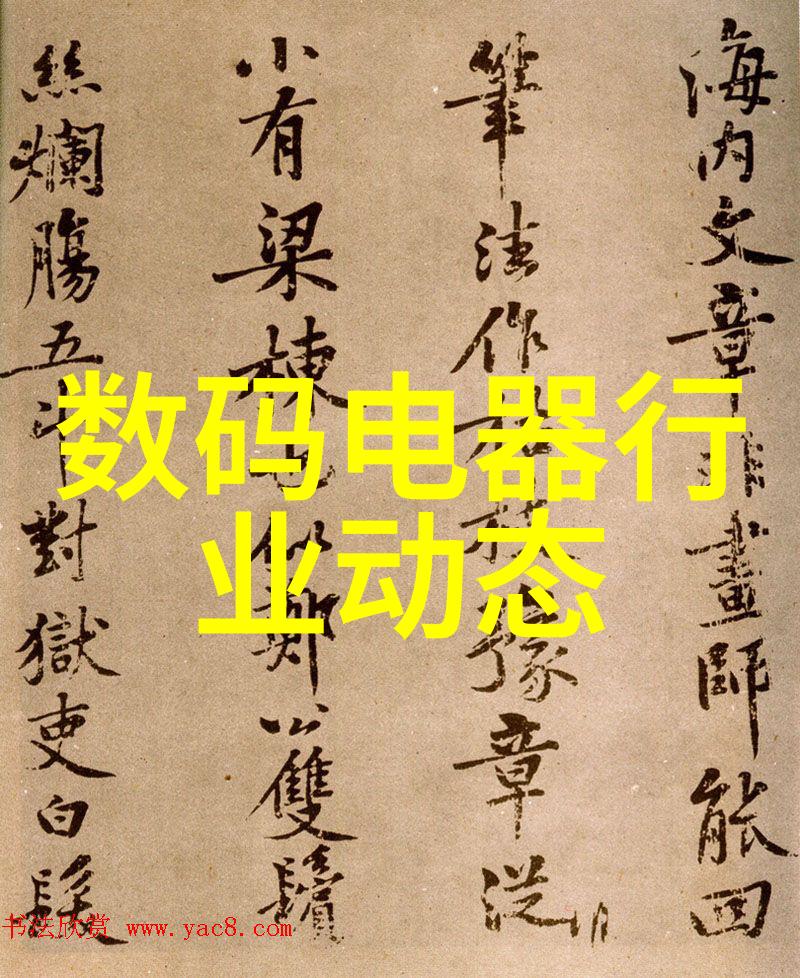 海内文章非畫師能回
筆法作枯枝豫章從
小有梁棟也似鄭公雙鬢
絲爛腸五斗對獄吏白髮
数码电器行
业动态
书法欣赏 www.yac8.com